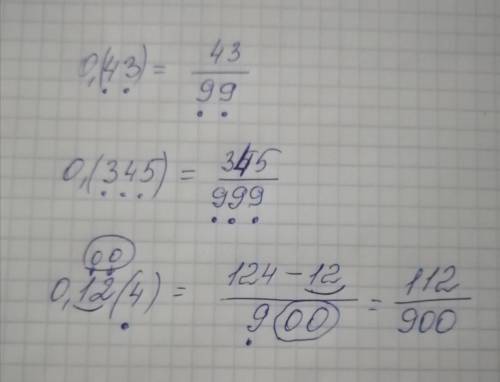 0,(43) = 43/99
0,(345) = 345/999
00
0,12(4) = 124-12/900 = 112/900